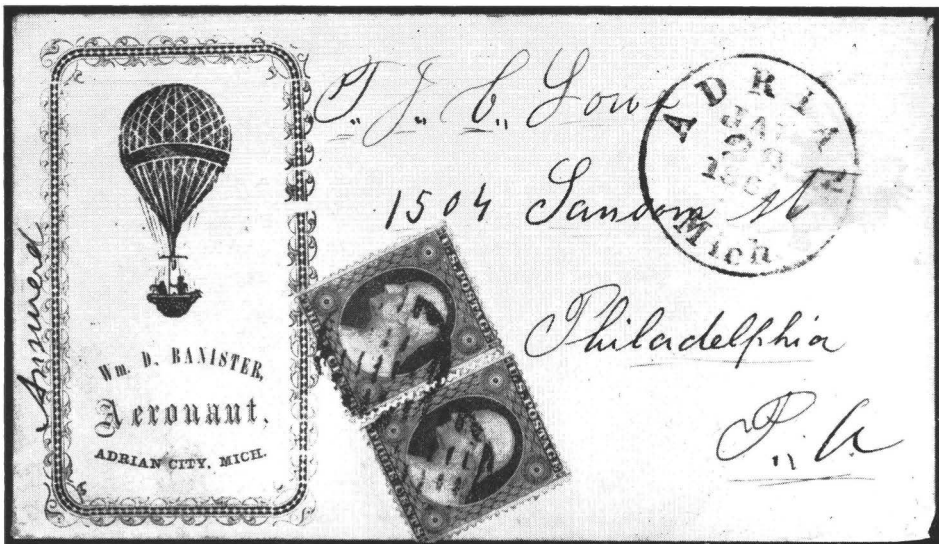 Answered
Wm. D. BANISTER,
Aeronaut,
ADRIAN CITY, MICH.
T,, J,, C,, Lowe
1504 Sansom st
Philadelphia
P,, A
ADRIAN
Mich.
U.S. POSTAGE.
THREE CENTS.
U.S. POSTAGE.
THREE CENTS.